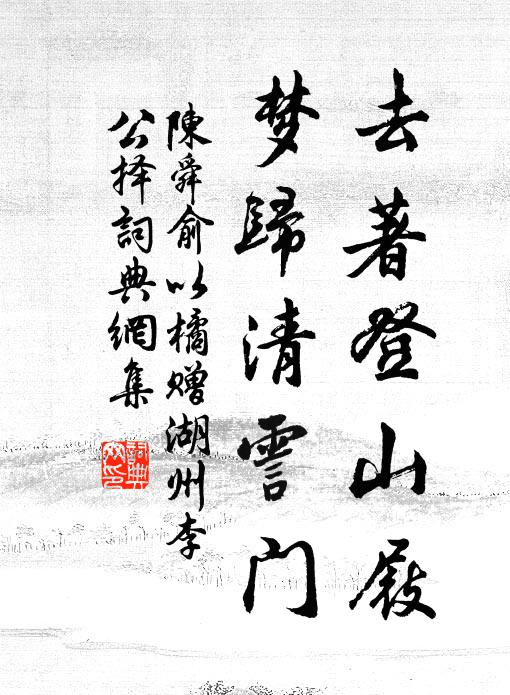 去著登山屐
梦歸清霅门
陳舜俞以橘赠湖州李
公择詞典網集